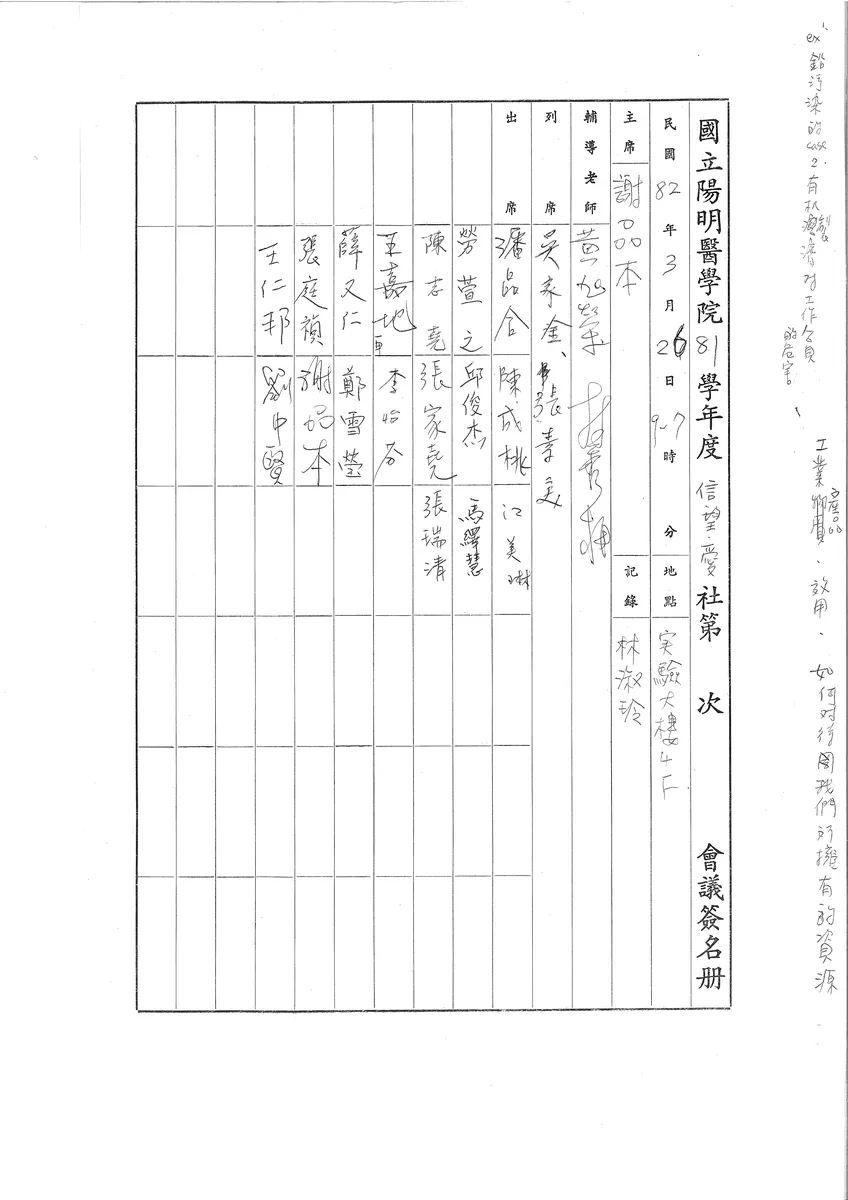 國立陽明醫學院81學年度信望愛社第 次 會議簽名冊
民國82年3月26日9-7時 分 地點 実驗大樓4F
主席 謝品本 記錄 林淑玲
輔導老師
列席
出席 潘品合 陳成桃 江美琳
勞萱之 邱俊杰 馮繹慧
陳志堯 張家堯 張瑞清
李怡芬
薛又仁 鄭雪瑩
張庭禎 謝品本
王仁邦 劉中賢
ex 鉛污染的case 2.有机溶濟对工作人員的危害
工業產品、效用、如何对待我們所擁有的資源